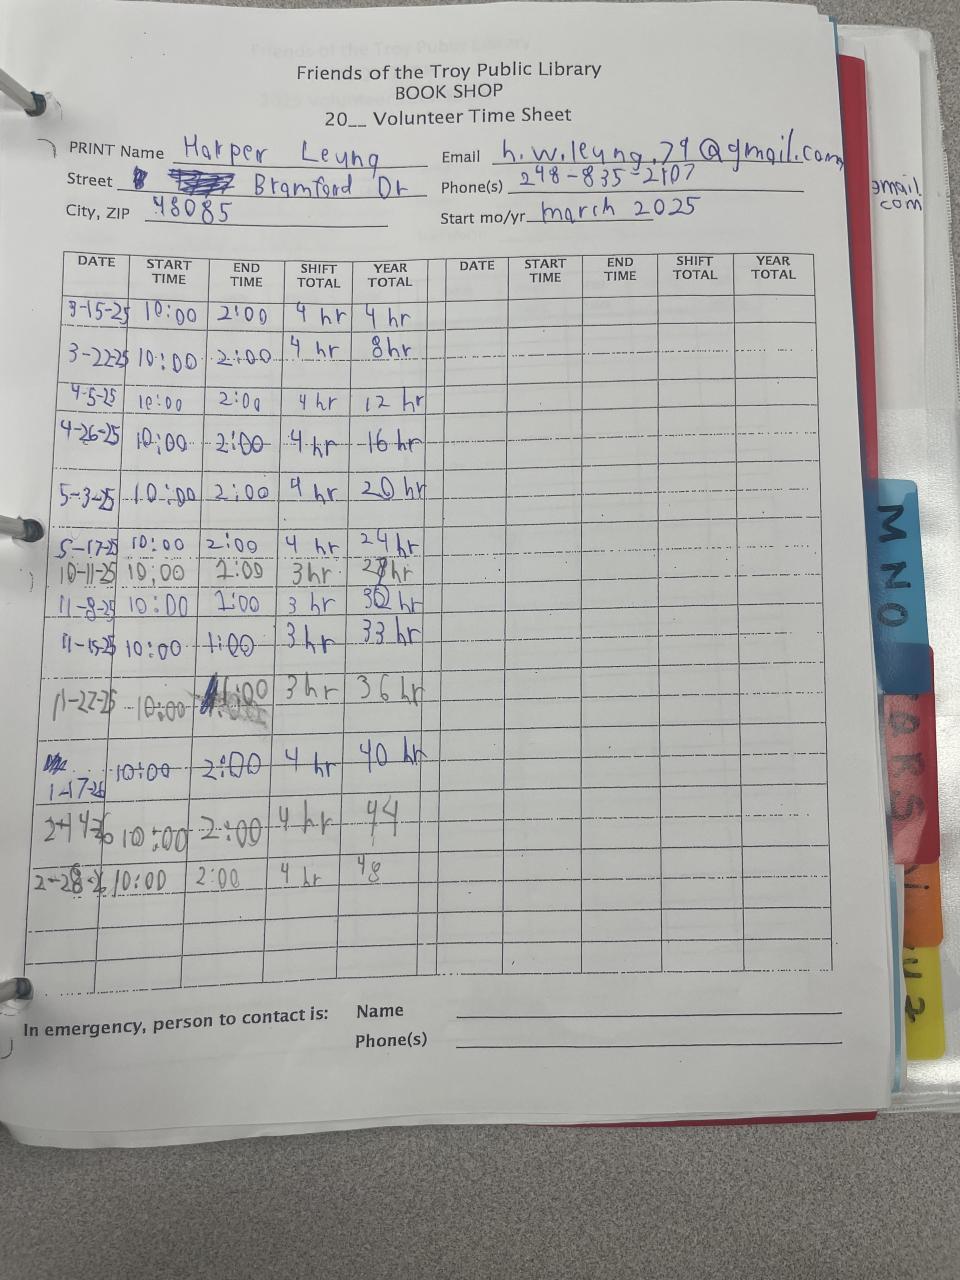 Friends of the Troy Public Library
BOOK SHOP
20__ Volunteer Time Sheet
PRINT Name Harper Leung
Email h.w.leung.79@gmail.com
Street Bramford Dr
Phone(s) 248-835-2107
City, ZIP 48085
Start mo/yr march 2025
gmail.
com
DATE START TIME END TIME SHIFT TOTAL YEAR TOTAL DATE START TIME END TIME SHIFT TOTAL YEAR TOTAL
3-15-25 10:00 2:00 4 hr 4 hr
3-22-25 10:00 2:00 4 hr 8hr
4-5-25 10:00 2:00 4 hr 12 hr
4-26-25 10:00 2:00 4 hr 16 hr
5-3-25 10:00 2:00 4 hr 20 hr
5-17-25 10:00 2:00 4 hr 24 hr
10-11-25 10:00 1:00 3hr
11-8-25 10:00 1:00 3 hr
11-15-25 10:00 1:00 3hr 33 hr
11-22-25 10:00 1:00 3 hr 36 hr
1-17-26 10:00 2:00 4 hr 40 hr
2-14-26 10:00 2:00 4 hr 44
2-28-26 10:00 2:00 4 hr 48
In emergency, person to contact is: Name
Phone(s)
M N O